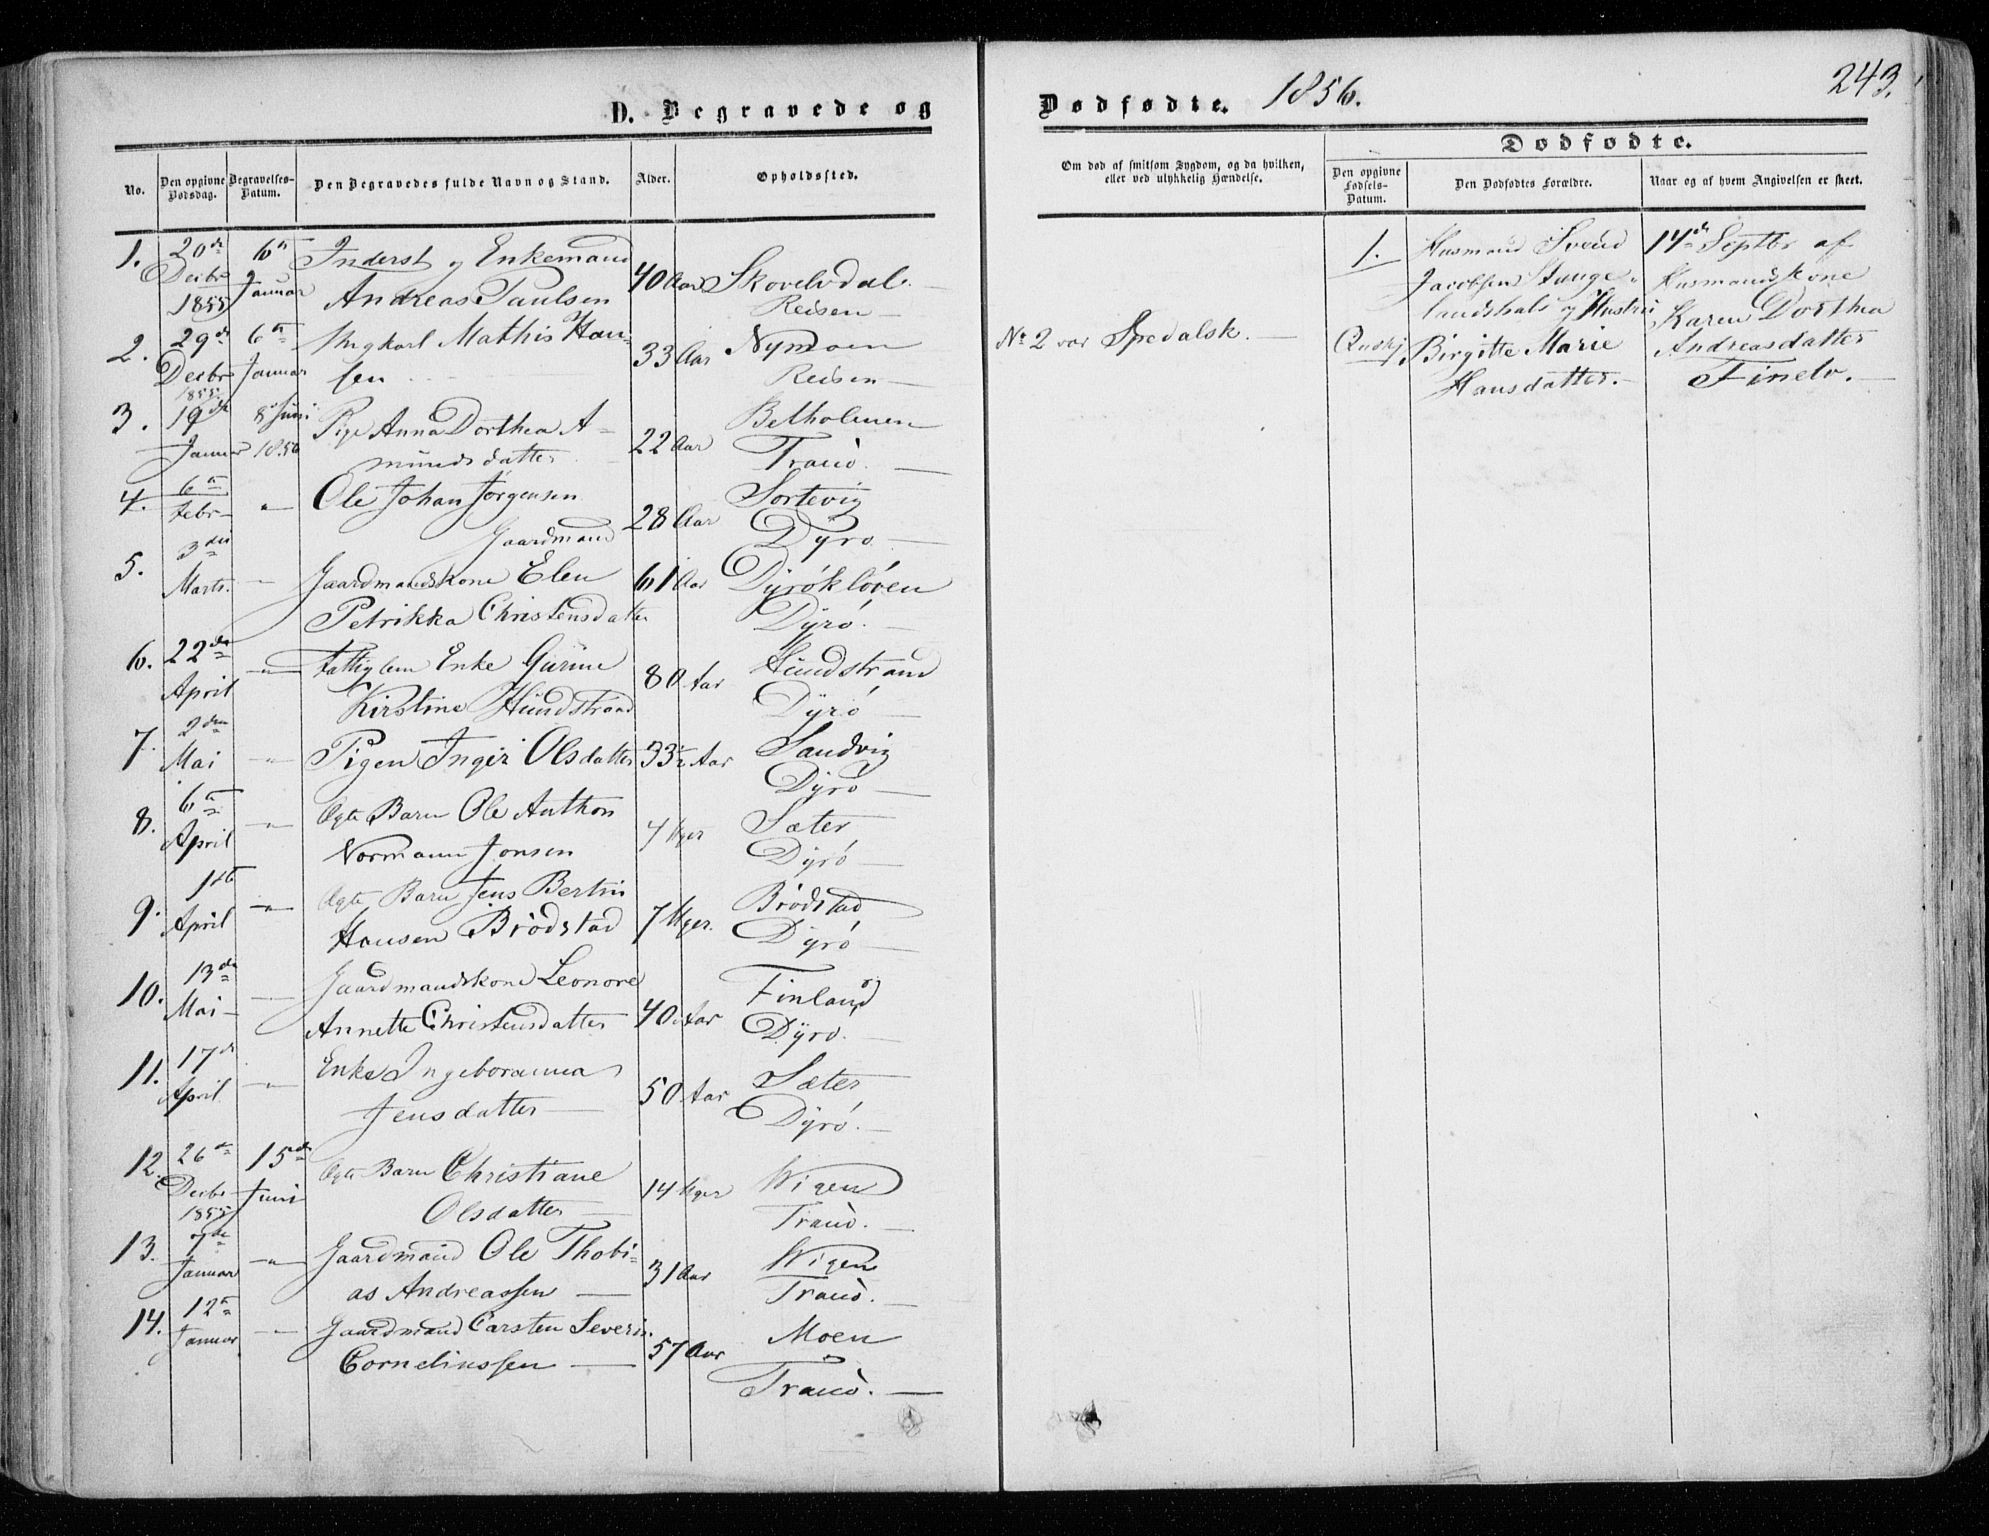 D. Begravede og
Dødfødte. 1856.
243.
No.
Den opgivne Dødsdag.
Begravelses-Datum.
Den Begravedes fulde Navn og Stand.
Alder.
Opholdssted.
Om død af smitsom Sygdom, og da hvilken,
eller ved ulykkelig Hændelse.
Dødfødte.
Den opgivne Fødsels-Datum.
Den Dødfødtes Forældre.
Naar og af hvem Angivelsen er skeet.
1. 20de Decbr 1855 6te Januar
Inderst og Enkemand
Andreas Paulsen
40 Aar Skovelvdal
Reisen
2. 29de Decbr 1855 6te Januar
Ungkarl Mathis Han-
sen
33 Aar Nymoen
Reisen
3. 19de Januar 8de Juni 1856
Pige Anna Dorthea A-
mundsdatter
22 Aar Betholmen
Tranö.
4. 6te Febr "
Ole Johan Jörgensen
Gaardmand
28 Aar Sortevig
Dyrö
5. 3die Marts. "
Gaardmandskone Elen
Petrikka Christensdatter
61 Aar Dyrökloven
Dyrö.
6. 22de April "
Fattiglem Enke Gurine
Kirstine Hundstrand
80 Aar Hundstrand
Dyrö
7. 2den Mai "
Pigen Inger Olsdatter
33½ Aar Sandvig
Dyrö
8. 6te April "
Ægte Barn Ole Anthon
Normann Jonsen
Uger Sæter
Dyrö
9. 1ste April "
Ægte Barn Jens
Hansen Brödstad
7 Uger. Brödstad
Dyrö
10. 13de Mai "
Gaardmandskone Leonore
Annette Christensdatter
40 Aar Finland
Dyrö.
11. 17de April "
Enke Ingeboranna
Jensdatter
50 Aar Sæter
Dyrö.
12. 26de Decbr 1855 15de Juni
Ægte Barn Christiane
Olsdatter
14 Uger Wigen
Tranö.
13. Januar "
Gaardmand Ole Thobi-
as Andreassen
31 Aar Wigen
Tranö.
14. 12te Januar "
Gaardmand Carsten Severin
Corneliussen
57 Aar Moen
Tranö.
No 2 var Spedalsk.
1.
Husmand Svend
Jacobsen
og Hustru
Birgitte Marie
Hansdatter.
14de Septbr af
Husmandskone
Karen Dorthea
Andreasdatter